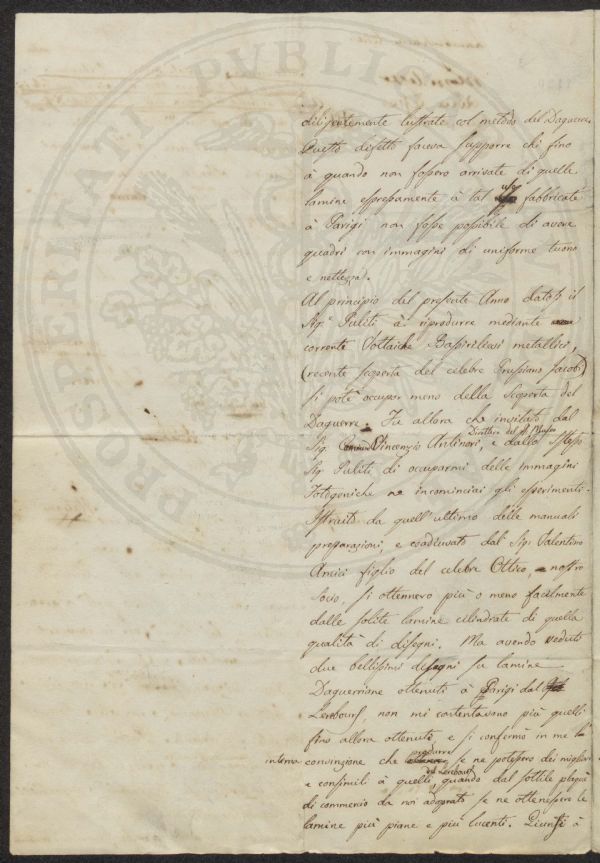 diligentemente lustrate col metodo del Daguerre.
Questo difetto faceva supporre chi fino
à quando non fossero arrivate di quelle
lamine espressamente à tal uso fabbricate
à Parigi non fosse possibile di avere
quadri con immagini di uniforme tuono
e nettezza.
Al principio del presente Anno datosi il
Sig.r Puliti à riprodurre mediante
corrente Voltaiche Bassirilievi metallici,
(recente scoperta del celebre Prussiano Jacobi)
si potè occupar meno della Scoperta del
Daguerre. Fu allora che invitato dal
Direttore del R. Museo
Sig. Vincenzio Antinori, e dallo stesso
Sig Puliti, di occuparmi delle immagini
Fotogeniche ne incominciai gli esperimenti.
Istruito da quell'ultimo delle manuali
preparazioni, e coadiuvato dal Sig. Valentino
Amici figlio del celebre Ottico, nostro
Socio, si ottennero più o meno facilmente
dalle solite lamine cilindrate di quella
qualità di disegni. Ma avendo veduti
due bellissimi disegni su lamine
Daguerriane ottenuti à Parigi dal
Lerebours, non mi contentavano più quelli
fino allora ottenuti, e si confermò in me l'
interna convinzione che produrre se ne potessero dei migliori
di Lerebours
e consimili à quelli, quando dal sottile plaquè
di commercio da noi adoprato se ne ottenessero le
lamine più piane e più lucenti. Giunsi à
PROSPERITATI PVBLICAE